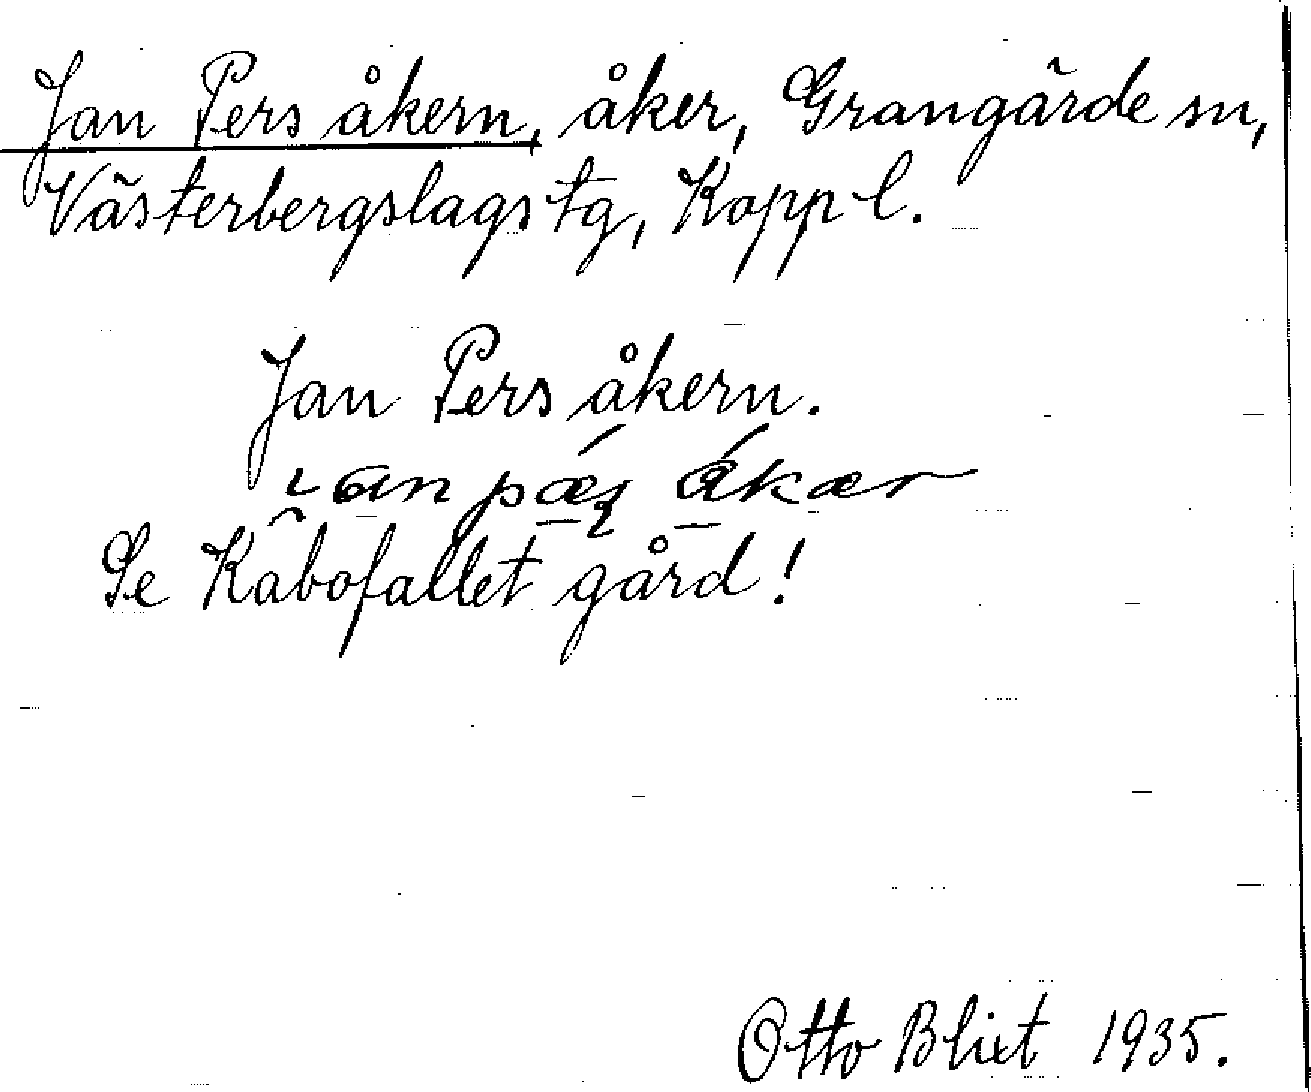 Jan Pers åkern, åker, Grangärde sn,
Västerbergslags tg, Kopp l.
Jan Pers åkern.
Se Käbofallet gård!
Otto Blixt 1935.